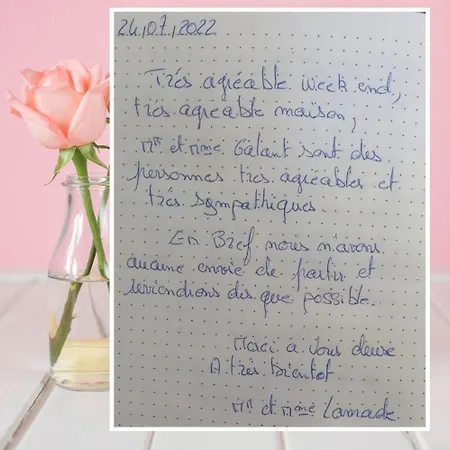 24.07.2022
Très agréable week end,
très agréable maison,
Mr et Mme Galant sont des
personnes très agréables et
très sympathiques.
En Bref nous n'avons
aucune envie de partir et
reviendrons dès que possible.
Merci à vous deux
A très bientot
Mr et Mme Lamade.